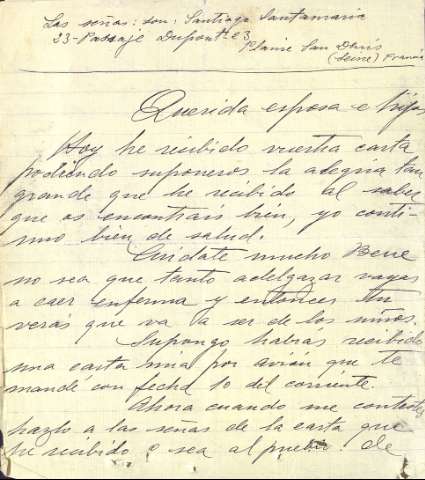 Las señas: son: Santiago Santamaria
23-Passaje Dupont nº 23
Plaine San Denis
(Seine) Francia
Querida esposa e hijos
Hoy he recibido vuestra carta
pudiendo suponeros la alegria tan
grande que he recibido al saber
que os encontrais bien, yo conti-
nuo bien de salud.
Cuidate mucho Bene
no sea que tanto adelgazar vayas
a caer enferma y entonces tu
verás que va a ser de los niños.
Supongo habras recibido
una carta mia por avión que te
mandé con fecha 10 del corriente.
Ahora cuando me contestes
hazlo a las señas de la carta que
he recibido o sea al de